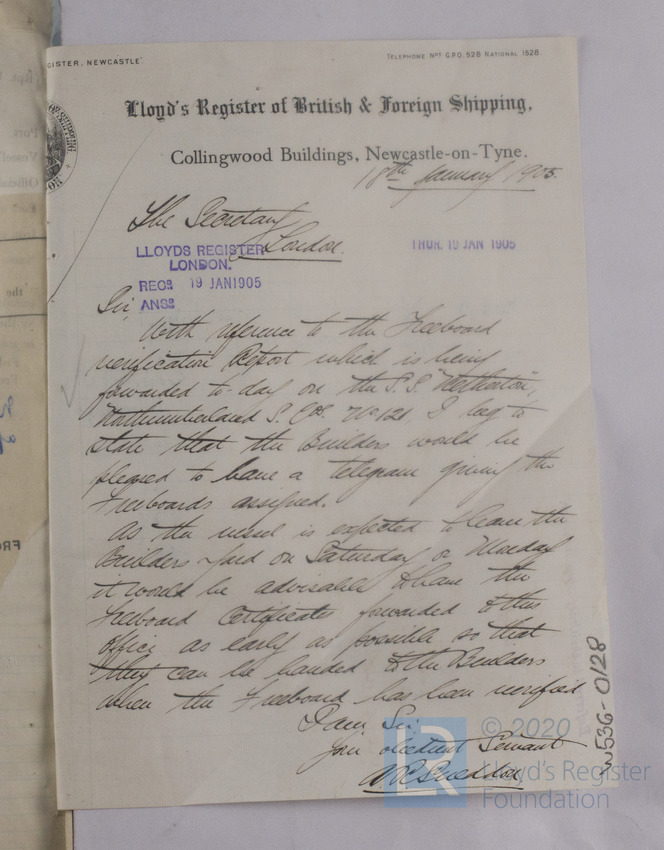 GISTER, NEWCASTLE.
TELEPHONE NOS G.P.O. 528 NATIONAL 1528.
Lloyd's Register of British & Foreign Shipping,
Collingwood Buildings, Newcastle-on-Tyne.
18th January 1905.
The Secretary
London.
LLOYDS REGISTER
LONDON.
RECD 19 JAN 1905
ANSD
THUR. 19 JAN 1905
Sir,
With reference to the Freeboard
verification Report which is being
forwarded to-day on the S.S. "Netherton",
Northumberland S. Cos. No 121, I beg to
state that the Builders would be
pleased to have a telegram giving the
Freeboards assigned.
As the vessel is expected to leave the
Builders Yard on Saturday or Monday
it would be advisable to have the
Freeboard Certificates forwarded to this
office as early as possible so that
they can be handed to the Builders
when the Freeboard has been verified
I am Sir
Your obedient Servant
W536-0128
© 2020
LR
Lloyd's Register
Foundation